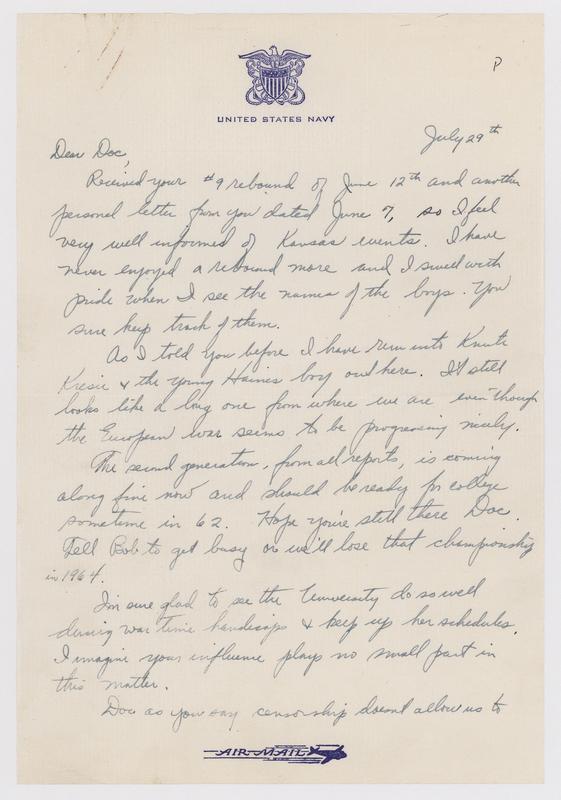 P
UNITED STATES NAVY
July 29th
Dear Doc,
Received your #9 rebound of June 12th and another
personal letter from you dated June 7, so I feel
very well informed of Kansas events. I have
never enjoyed a rebound more and I swell with
pride when I see the names of the boys. You
sure keep track of them.
As I told you before I have run into Knute
Kresie & the young Haines boy out here. It still
looks like a long one from where we are even though
the European war seems to be progressing nicely.
The second generation, from all reports, is coming
along fine now and should be ready for college
sometime in 62. Hope you're still there Doc.
Tell Bob to get busy or we'll lose that championship
in 1964.
I'm sure glad to see the University do so well
during war time handicaps & keep up her schedules.
I imagine your influence plays no small part in
this matter.
Doc as you say censorship doesnt allow us to
AIR MAIL